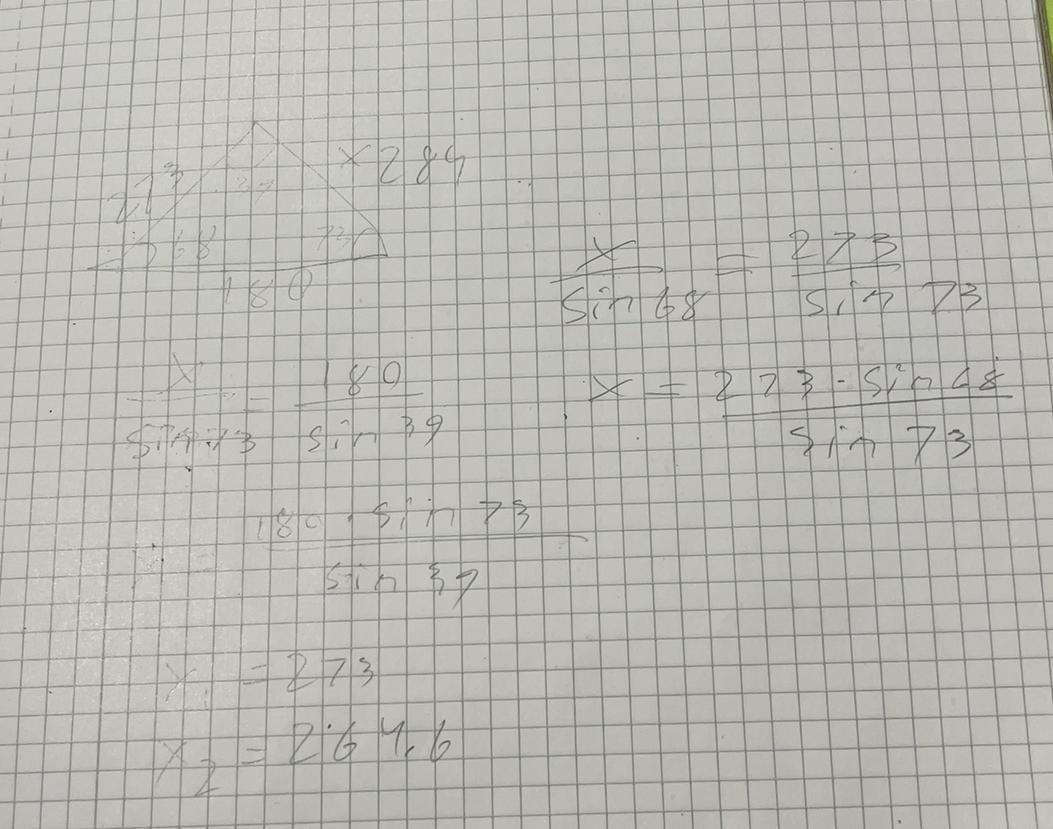 273 x 284
39
68 73
180
x/sin 73 = 180/sin 39
180 · sin 73/sin 39
x₁ = 273
x₂ = 264.6
x/sin 68 = 273/sin 73
x = 273 · sin 68/sin 73